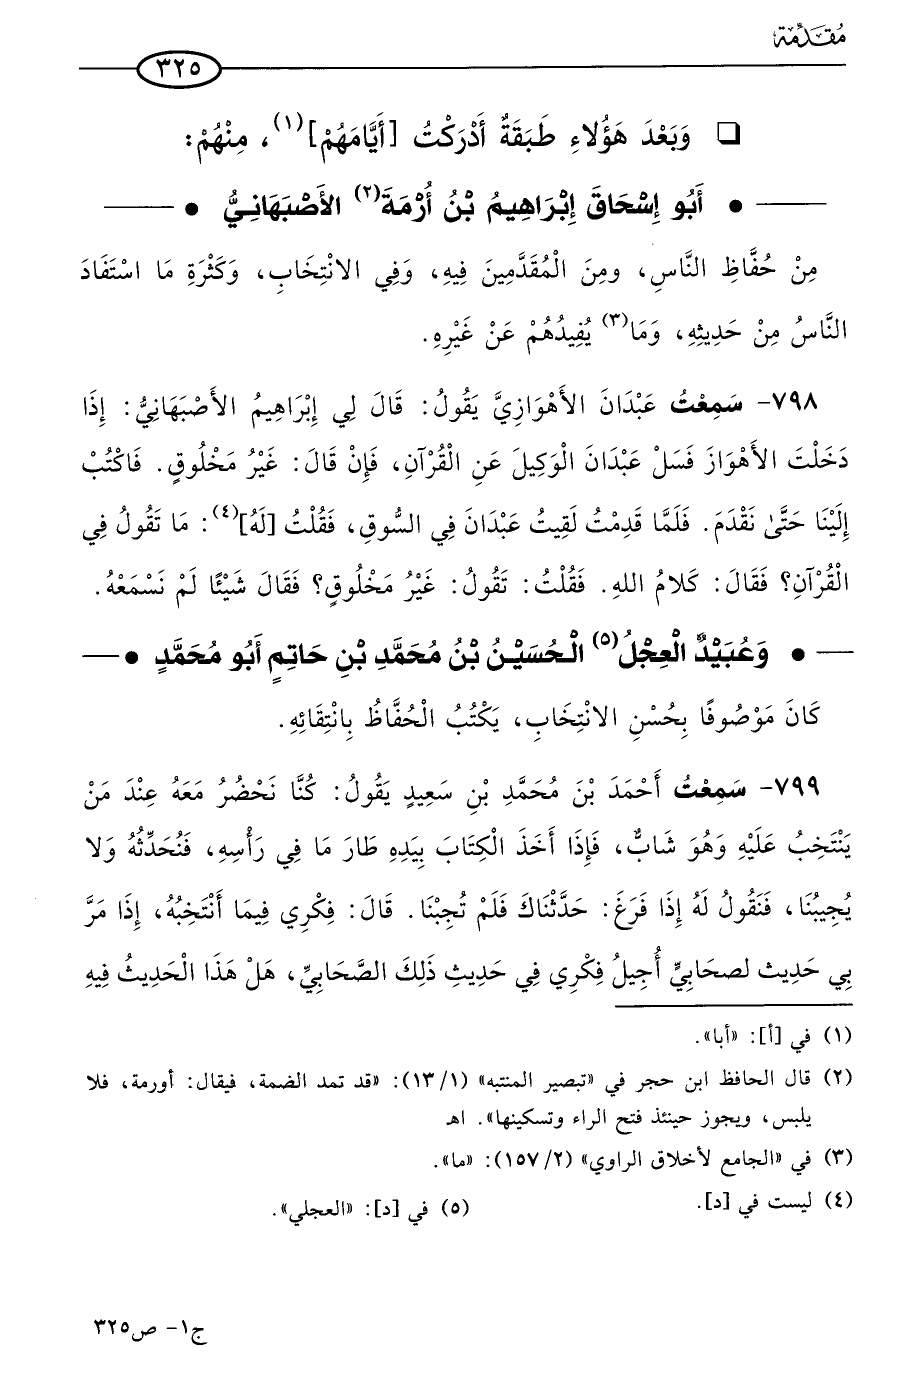 مُقَدِّمَة
٣٢٥
❑ وَبَعْدَ هَؤُلاءِ طَبَقَةٌ أَدْرَكْتُ [أَيَّامَهُمْ](١)، مِنْهُمْ:
• أَبُو إِسْحَاقَ إِبْرَاهِيمُ بْنُ أُرْمَةَ(٢) الأَصْبَهَانِيُّ •
مِنْ حُفَّاظِ النَّاسِ، ومِنَ الْمُقَدَّمِينَ فِيهِ، وَفِي الانْتِخَابِ، وَكَثْرَةِ مَا اسْتَفَادَ
النَّاسُ مِنْ حَدِيثِهِ، وَمَا(٣) يُفِيدُهُمْ عَنْ غَيْرِهِ.
٧٩٨- سَمِعْتُ عَبْدَانَ الأَهْوَازِيَّ يَقُولُ: قَالَ لِي إِبْرَاهِيمُ الأَصْبَهَانِيُّ: إِذَا
دَخَلْتَ الأَهْوَازَ فَسَلْ عَبْدَانَ الْوَكِيلَ عَنِ الْقُرْآنِ، فَإِنْ قَالَ: غَيْرُ مَخْلُوقٍ. فَاكْتُبْ
إِلَيْنَا حَتَّىٰ نَقْدَمَ. فَلَمَّا قَدِمْتُ لَقِيتُ عَبْدَانَ فِي السُّوقِ، فَقُلْتُ [لَهُ](٤): مَا تَقُولُ فِي
الْقُرْآنِ؟ فَقَالَ: كَلامُ اللهِ. فَقُلْتُ: تَقُولُ: غَيْرُ مَخْلُوقٍ؟ فَقَالَ شَيْئًا لَمْ نَسْمَعْهُ.
• وَعُبَيْدٌ الْعِجْلُ(٥) الْحُسَيْنُ بْنُ مُحَمَّدِ بْنِ حَاتِمٍ أَبُو مُحَمَّدٍ •
كَانَ مَوْصُوفًا بِحُسْنِ الانْتِخَابِ، يَكْتُبُ الْحُفَّاظُ بِانْتِقَائِهِ.
٧٩٩- سَمِعْتُ أَحْمَدَ بْنَ مُحَمَّدِ بْنِ سَعِيدٍ يَقُولُ: كُنَّا نَحْضُرُ مَعَهُ عِنْدَ مَنْ
يَنْتَخِبُ عَلَيْهِ وَهُوَ شَابٌّ، فَإِذَا أَخَذَ الْكِتَابَ بِيَدِهِ طَارَ مَا فِي رَأْسِهِ، فَنُحَدِّثُهُ وَلا
يُجِيبُنَا، فَنَقُولُ لَهُ إِذَا فَرَغَ: حَدَّثْنَاكَ فَلَمْ تُجِبْنَا. قَالَ: فِكْرِي فِيمَا أَنْتَخِبُهُ، إِذَا مَرَّ
بِي حَدِيث لصحَابِيٍّ أُجِيلُ فِكْرِي فِي حَدِيثِ ذَلِكَ الصَّحَابِيِّ، هَلْ هَذَا الْحَدِيثُ فِيهِ
(١) في [أ]: «أبا».
(٢) قال الحافظ ابن حجر في «تبصير المنتبه» (١٣/١): «قد تمد الضمة، فيقال: أورمة، فلا
يلبس، ويجوز حينئذ فتح الراء وتسكينها». اهـ
(٣) في «الجامع لأخلاق الراوي» (١٥٧/٢): «ما».
(٤) ليست في [د]. (٥) في [د]: «العجلي».
ج١- ص٣٢٥